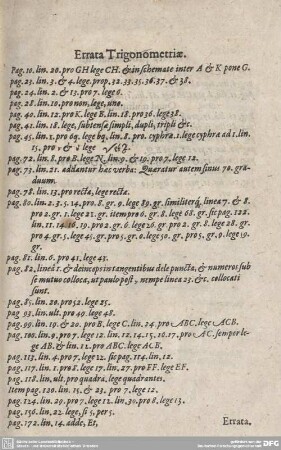 Errata Trigonometriæ.
Pag. 10. lin. 20. pro GH lege CH. & in schemate inter A & K pone G.
pag. 23. lin. 3. & 4. lege, prop. 32. 33. 35. 36. 37. & 38.
pag. 24. lin. 2. & 13. pro 7. lege 6.
pag. 28. lin. 10. pro non, lege, uno.
pag. 40. lin. 12. pro K. lege B. lin. 18. pro 36. lege 38.
pag. 42. lin. 18. lege, subtensæ simpli, dupli, tripli &c.
pag. 45. lin. 1. pro 6q. lege bq. lin. 8. pro. cyphra. 1. lege cyphra ad 1. lin.
15. pro
pag. 72. lin. 8. pro B. lege N. lin. 9. & 19. pro 7. lege 12.
pag. 73. lin. 21. addantur hæc verba: Quæratur autem sinus 70. gra-
duum.
pag. 78. lin. 13. pro recta, lege rectæ.
pag. 80. lin. 2. 3. 14. pro. 8. gr. 9. lege 89. gr. similiterq́, linea 7. & 8.
pro 2. gr. 1. lege 21. gr. item pro 6. gr. 8. lege 68. gr. sic pag. 128.
lin. 11. 14. 16. 19. pro 2. gr. 6. lege 26. gr. pro 2. gr. 8. lege 28. gr.
pro 4. gr. 5. lege 45. gr. pro 5. gr. 0. lege 50. gr. pro 5. gr. 9. lege 59.
gr.
pag. 81. lin. 6. pro 41. lege 43.
pag. 82. linea 1. & deinceps in tangentibus dele puncta, & numeros sub
se mutuo colloca, ut paulo post, nempe linea 23. & c. collocati
sunt.
pag. 85. lin. 20. pro 52. lege 25.
pag. 93. lin. ult. pro 49. lege 48.
pag. 99. lin. 19. & 20. pro B. lege C. lin. 24. pro ABC, lege ACB.
pag. 100. lin. 9. pro 7. lege 12. lin. 12. 14. 15. 16. 17. pro AC, semper le-
ge AB. & lin. 22. pro ABC. lege ACB.
pag. 113. lin. 4. pro 7. lege 22. sic pag. 114. lin. 12.
pag. 117. lin. 1. pro 8. lege 17. lin. 27. pro FF. lege EF.
pag. 118. lin. ult. pro quadra, lege quadrantes.
Item pag. 120. lin. 15. & 23. pro 7. lege 12.
pag. 124. lin. 29. pro 7. lege 12. lin. 30. pro 8. lege 13.
pag. 156. lin. 22. lege, si 5, per 5.
pag. 172. lin. 14. adde, Et,
Errata.